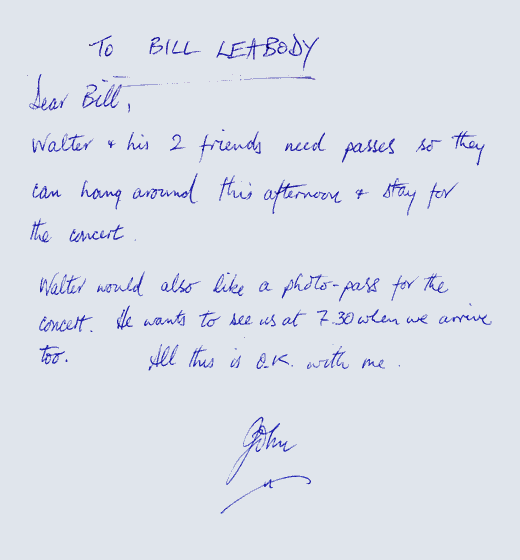 To BILL LEABODY
Dear Bill,
Walter & his 2 friends need passes so they
can hang around this afternoon & stay for
the concert.
Walter would also like a photo-pass for the
concert. He wants to see us at 7.30 when we arrive
too. All this is O.K. with me.
John